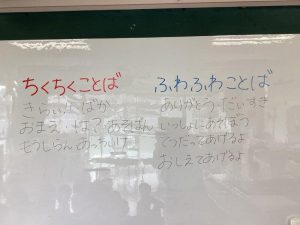 ちくちくことば
きらい ばか
おまえ あそばん
もうしらん あっちいけ
ふわふわことば
ありがとう だいすき
いっしょにあそぼう
てつだってあげるよ
おしえてあげるよ